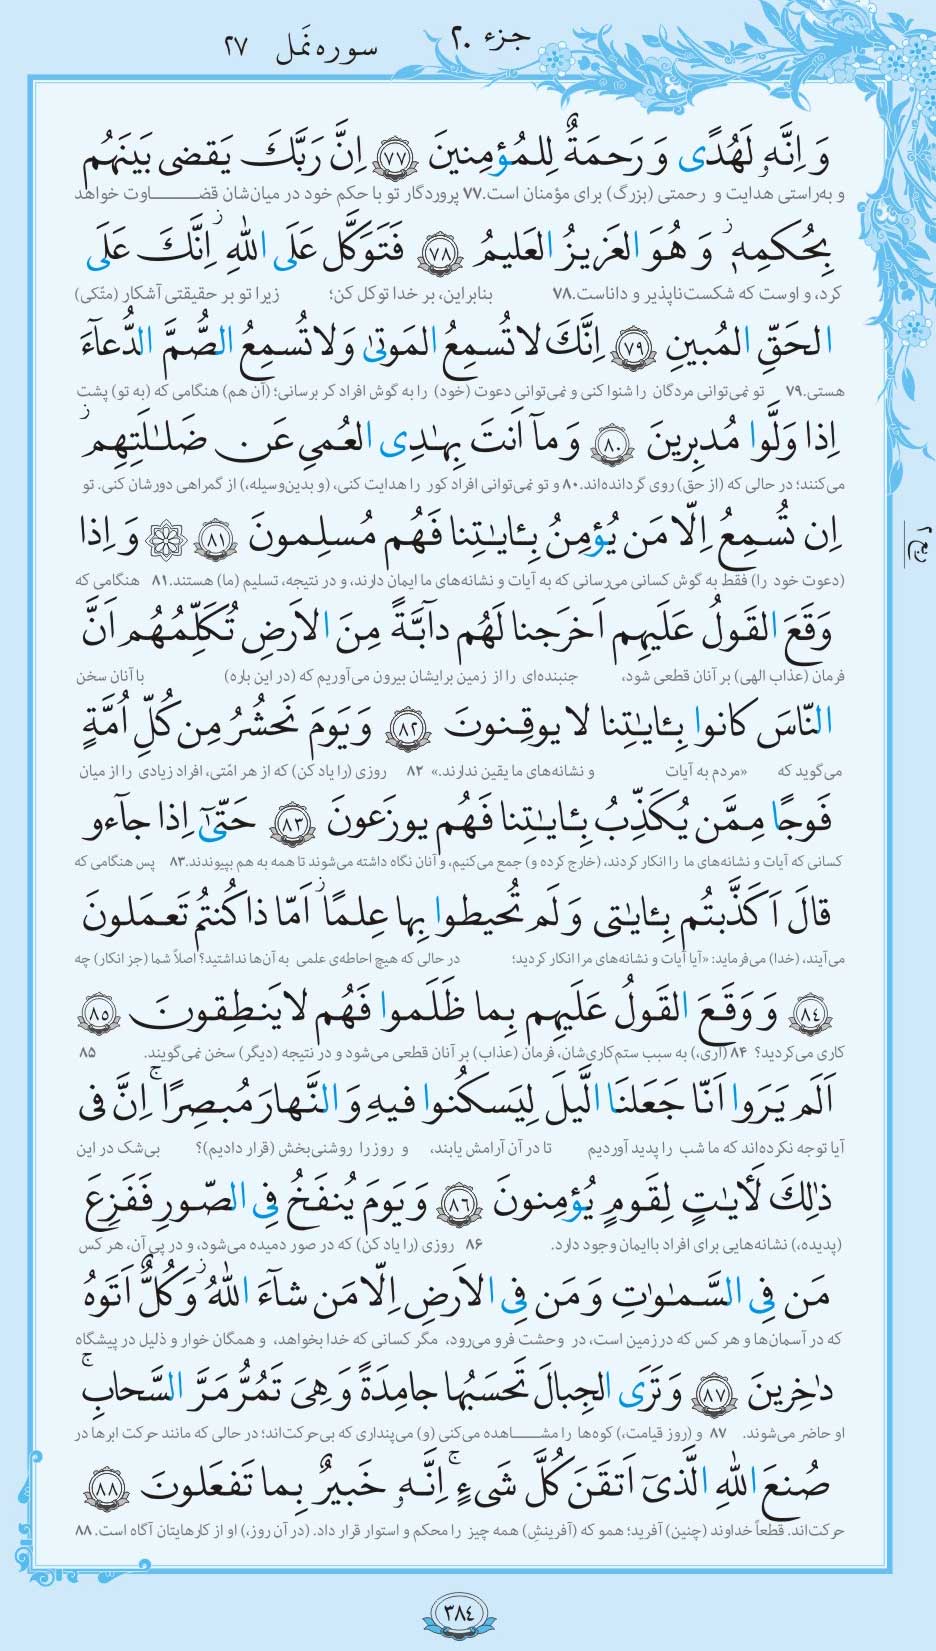 جزء ۲۰
سوره نَمل ۲۷
وَ اِنَّهٗ لَهُدًى وَ رَحمَةٌ لِلمُؤمِنينَ ﴿۷۷﴾ اِنَّ رَبَّكَ يَقضى بَينَهُم
و به‌راستی هدایت و رحمتی (بزرگ) برای مؤمنان است.۷۷ پروردگار تو با حکم خود در میان‌شان قضـــاوت خواهد
بِحُكمِهٖ ۚ وَ هُوَ العَزيزُ العَليمُ ﴿۷۸﴾ فَتَوَكَّل عَلَى اللّٰهِ ۖ اِنَّكَ عَلَى
کرد، و اوست که شکست‌ناپذیر و داناست.۷۸ بنابراین، بر خدا توکل کن؛ زیرا تو بر حقیقتی آشکار (متّکی)
الحَقِّ المُبينِ ﴿۷۹﴾ اِنَّكَ لا تُسمِعُ المَوتىٰ وَ لا تُسمِعُ الصُّمَّ الدُّعآءَ
هستی.۷۹ تو نمی‌توانی مردگان را شنوا کنی و نمی‌توانی دعوت (خود) را به گوش افراد کر برسانی؛ (آن هم) هنگامی که (به تو) پشت
اِذا وَلَّوا مُدبِرينَ ﴿۸۰﴾ وَ مآ اَنتَ بِهـٰدِى العُمىِ عَن ضَلـٰلَتِهِم ۖ
می‌کنند؛ در حالی که (از حق) روی گردانده‌اند.۸۰ و تو نمی‌توانی افراد کور را هدایت کنی، (و بدین‌وسیله،) از گمراهی دورشان کنی. تو
اِن تُسمِعُ اِلّا مَن يُؤمِنُ بِـٔايـٰتِنا فَهُم مُسلِمونَ ﴿۸۱﴾ ۞ وَ اِذا
(دعوت خود را) فقط به گوش کسانی می‌رسانی که به آیات و نشانه‌های ما ایمان دارند، و در نتیجه، تسلیم (ما) هستند.۸۱ هنگامی که
وَقَعَ القَولُ عَلَيهِم اَخرَجنا لَهُم دآبَّةً مِنَ الاَرضِ تُكَلِّمُهُم اَنَّ
فرمان (عذاب الهی) بر آنان قطعی شود، جنبنده‌ای را از زمین برایشان بیرون می‌آوریم که (در این باره) با آنان سخن
النّاسَ كانوا بِـٔايـٰتِنا لا يوقِنونَ ﴿۸۲﴾ وَ يَومَ نَحشُرُ مِن كُلِّ اُمَّةٍ
می‌گوید که «مردم به آیات و نشانه‌های ما یقین ندارند.» ۸۲ روزی (را یاد کن) که از هر امّتی، افراد زیادی را از میان
فَوجًا مِمَّن يُكَذِّبُ بِـٔايـٰتِنا فَهُم يوزَعونَ ﴿۸۳﴾ حَتّىٰٓ اِذا جآءو
کسانی که آیات و نشانه‌های ما را انکار کردند، (خارج کرده و) جمع می‌کنیم، و آنان نگاه داشته می‌شوند تا همه به هم بپیوندند.۸۳ پس هنگامی که
قالَ اَكَذَّبتُم بِـٔايـٰتى وَ لَم تُحيطوا بِها عِلمًا ۖ اَمّا ذا كُنتُم تَعمَلونَ
می‌آیند، (خدا) می‌فرماید: «آیا آیات و نشانه‌های مرا انکار کردید؛ در حالی که هیچ احاطه‌ی علمی به آن‌ها نداشتید؟ اصلاً شما (جز انکار) چه
﴿۸۴﴾ وَ وَقَعَ القَولُ عَلَيهِم بِما ظَلَموا فَهُم لا يَنطِقونَ ﴿۸۵﴾
کاری می‌کردید؟ ۸۴ (آری،) به سبب ستم‌کاری‌شان، فرمان (عذاب) بر آنان قطعی می‌شود و در نتیجه (دیگر) سخن نمی‌گویند. ۸۵
اَلَم يَرَوا اَنّا جَعَلنَا الَّيلَ لِيَسكُنوا فيهِ وَ النَّهارَ مُبصِرًا ۚ اِنَّ فى
آیا توجه نکرده‌اند که ما شب را پدید آوردیم تا در آن آرامش یابند، و روز را روشنی‌بخش (قرار دادیم)؟ بی‌شک در این
ذٰلِكَ لَأيـٰتٍ لِقَومٍ يُؤمِنونَ ﴿۸۶﴾ وَ يَومَ يُنفَخُ فِى الصّورِ فَفَزِعَ
(پدیده،) نشانه‌هایی برای افراد باایمان وجود دارد. ۸۶ روزی (را یاد کن) که در صور دمیده می‌شود، و در پی آن، هر کس
مَن فِى السَّمـٰوٰتِ وَ مَن فِى الاَرضِ اِلّا مَن شآءَ اللّٰهُ ۖ وَ كُلٌّ اَتَوهُ
که در آسمان‌ها و هر کس که در زمین است، در وحشت فرو می‌رود، مگر کسانی که خدا بخواهد، و همگان خوار و ذلیل در پیشگاه
دٰخِرينَ ﴿۸۷﴾ وَ تَرَى الجِبالَ تَحسَبُها جامِدَةً وَ هِىَ تَمُرُّ مَرَّ السَّحابِ ۚ
او حاضر می‌شوند. ۸۷ و (روز قیامت،) کوه‌ها را مشـــاهده می‌کنی (و) می‌پنداری که بی‌حرکت‌اند؛ در حالی که مانند حرکت ابرها در
صُنعَ اللّٰهِ الَّذىٓ اَتقَنَ كُلَّ شَىءٍ ۚ اِنَّهٗ خَبيرٌ بِما تَفعَلونَ ﴿۸۸﴾
حرکت‌اند. قطعاً خداوند (چنین) آفرید؛ همو که (آفرینش) همه چیز را محکم و استوار قرار داد. (در آن روز،) او از کارهایتان آگاه است. ۸۸
۳۸۴